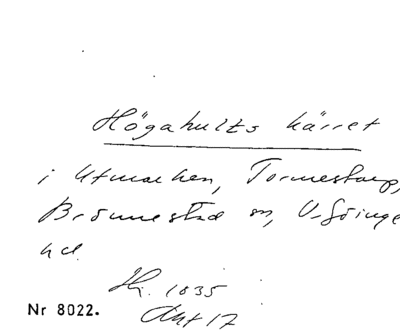 Högahults kärret
i Utmarken, Tormestorp,
Brönnestad sn, V. Göinge
hd.
Hj. 1835
Akt 17
Nr 8022.